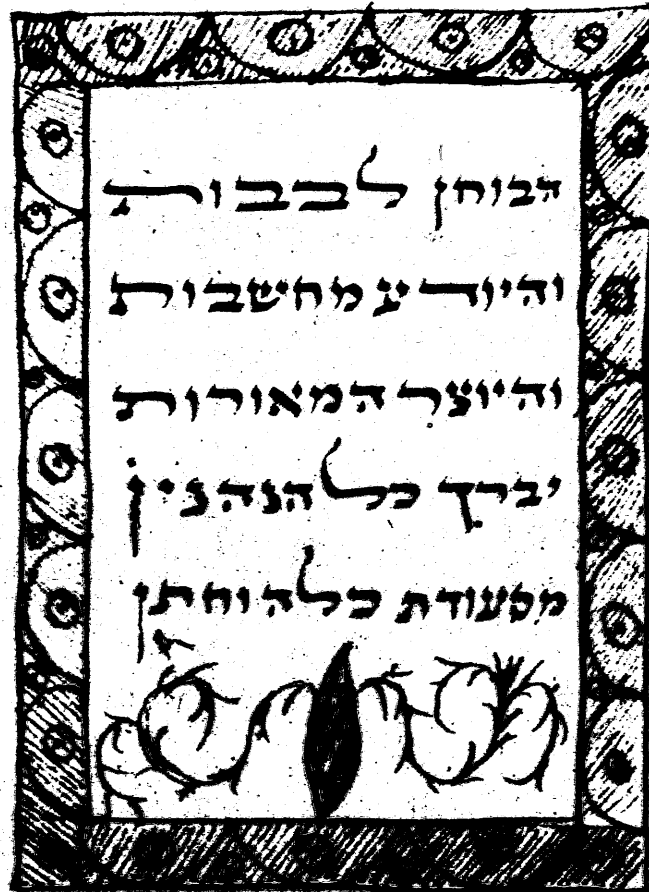 הבוחן לבבות
והיודע מחשבות
והיוצר המאורות
יברך כל הנהנין
מסעודת כלה וחתן